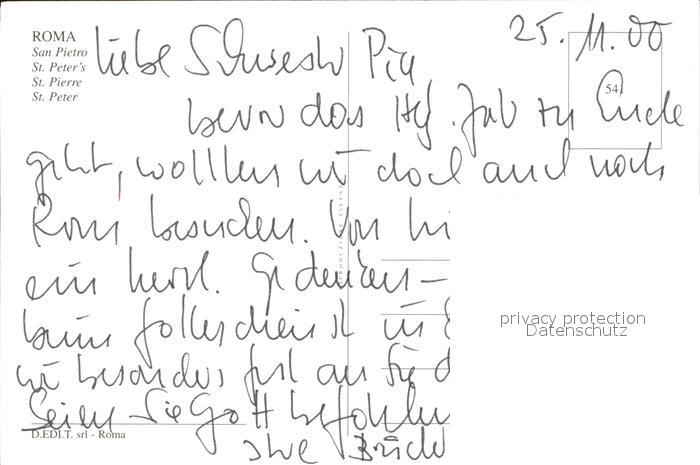 ROMA
San Pietro
St. Peter's
St. Pierre
St. Peter
25.11.00
54
Liebe Schwester Pia
bevor das Hlg. Jahr zu Ende
geht, wollten wir doch auch noch
Rom besuchen. Von hi
ein herzl. Gedenken –
beim Gottesdienst
wir besonders fest an Sie d
Seien Sie Gott befohlen
Ihre Brüder
privacy protection
Datenschutz
D.EDI.T. srl - Roma